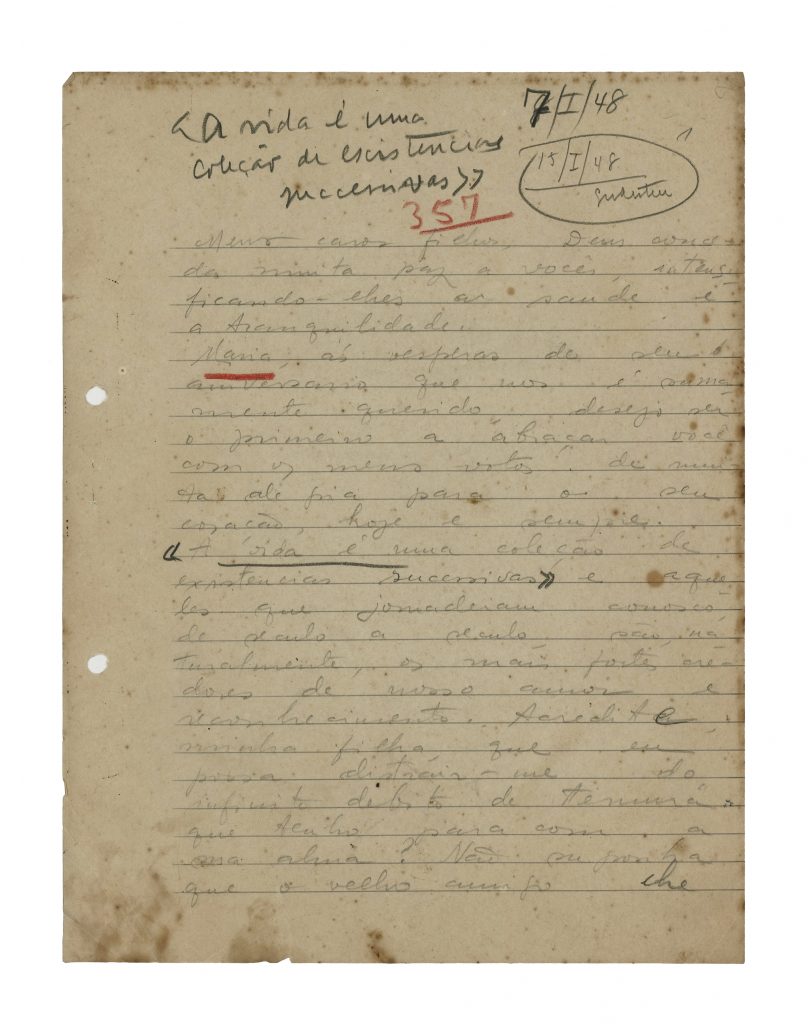 «A vida é uma
coleção de existências
sucessivas»
7/I/48
1
15/I/48
357
Meus caros filhos, Deus conce-
da muita paz a vocês, intensi-
ficando-lhes a saude e
a tranquilidade.
Maria, ás vesperas de seu
aniversario que nos é suma-
mente querido, desejo ser
o primeiro a abraçar você
com os meus votos de mui-
ta alegria para o seu
coração, hoje e sempre.
«A vida é uma coleção de
existencias sucessivas» e aque-
les que jornaderam conosco,
de seculo a seculo, são, na-
turalmente, os mais fortes cre-
dores de nosso amor e
reconhecimento. Acredite,
minha filha, que eu
possa distrair-me do
infinito debito de ternura
que tenho para com a
sua alma? Não suponha
que o velho amigo lhe